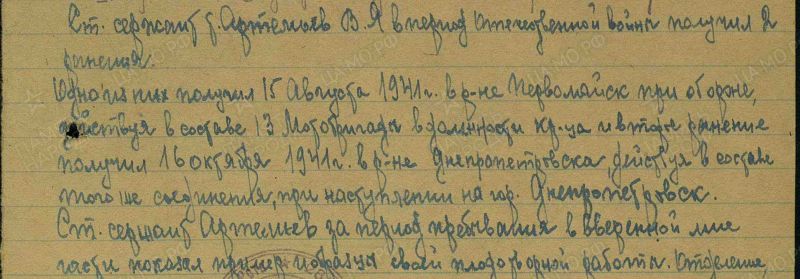 Ст. сержант т. Артемьев В. Я в период Отечественной войны получил 2
ранения.
Одно из них получил 15 Августа 1941 г. в р-не Первомайск при обороне,
действуя в составе 13 Мотобригады в должности кр-ца и второе ранение
получил 16 октября 1941 г. в р-не Днепропетровска, действуя в составе
того же соединения, при наступлении на гор. Днепропетровск.
Ст. сержант Артемьев за период пребывания в вверенной мне
части показал пример и образцы своей плодотворной работы. Отделение